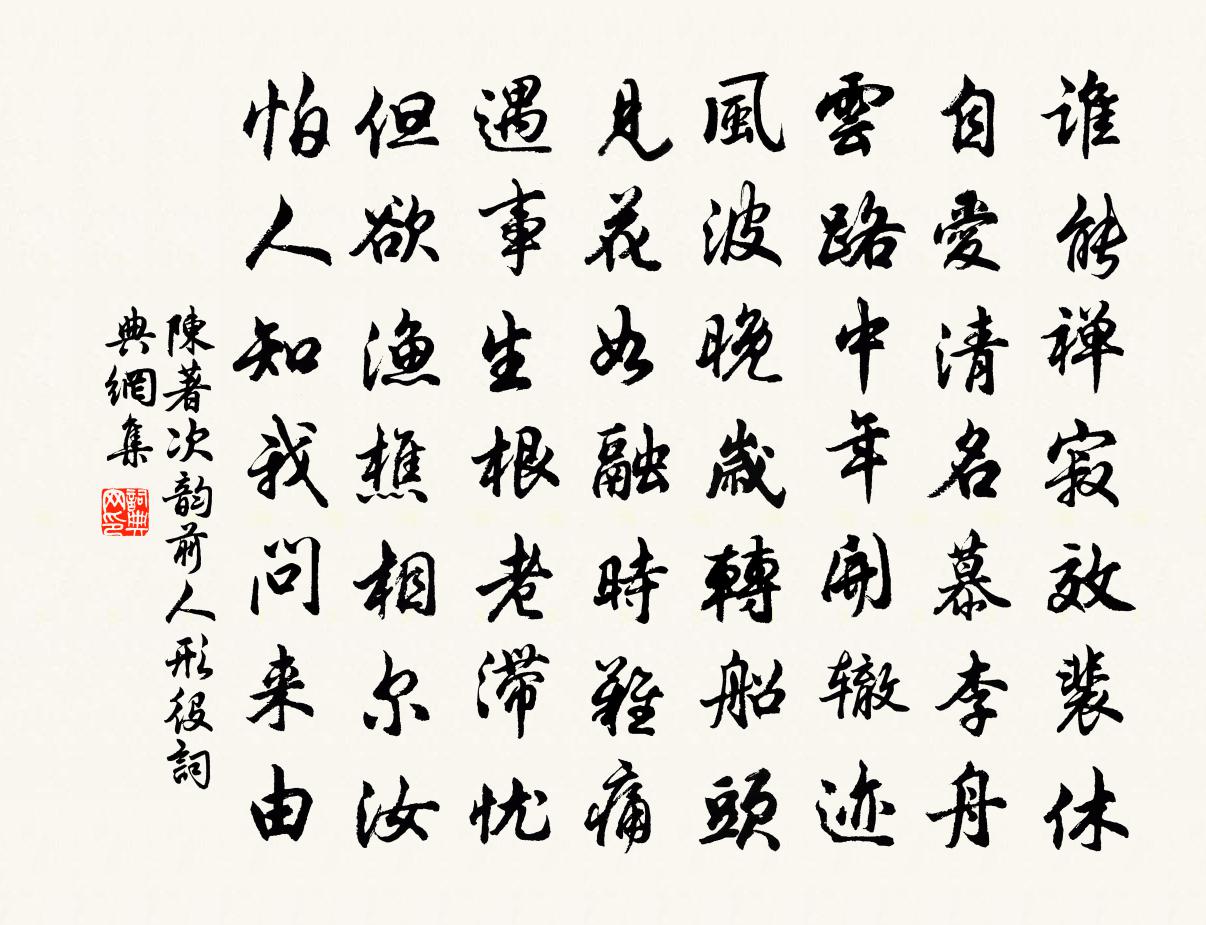 谁能禅寂效裴休
自爱清名慕李舟
雲路中年開辙迹
風波晚歲轉船頭
見花如融時難痛
遇事生根老滞忧
但欲漁樵相尔汝
怕人知我問来由
陳著次韵前人形役詞
典網集
詞典网印